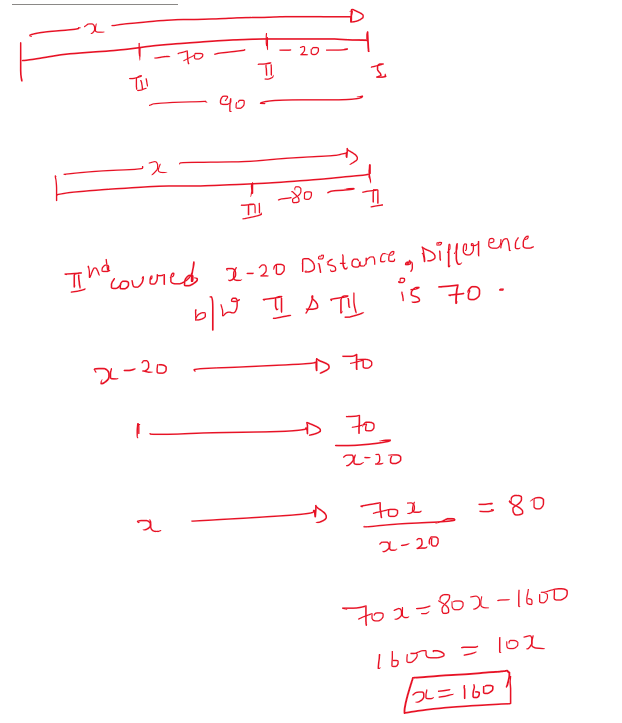 x
70 20
III II I
90
x
III 80 II
IInd covered x-20 Distance, Difference
b/w II & III is 70.
x-20 → 70
1 → 70/x-20
x → 70x/x-20 = 80
70x = 80x - 1600
1600 = 10x
x = 160